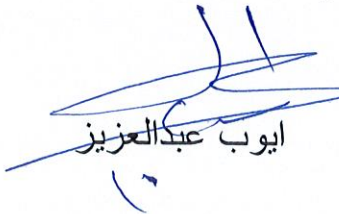 ايوب عبدالعزيز